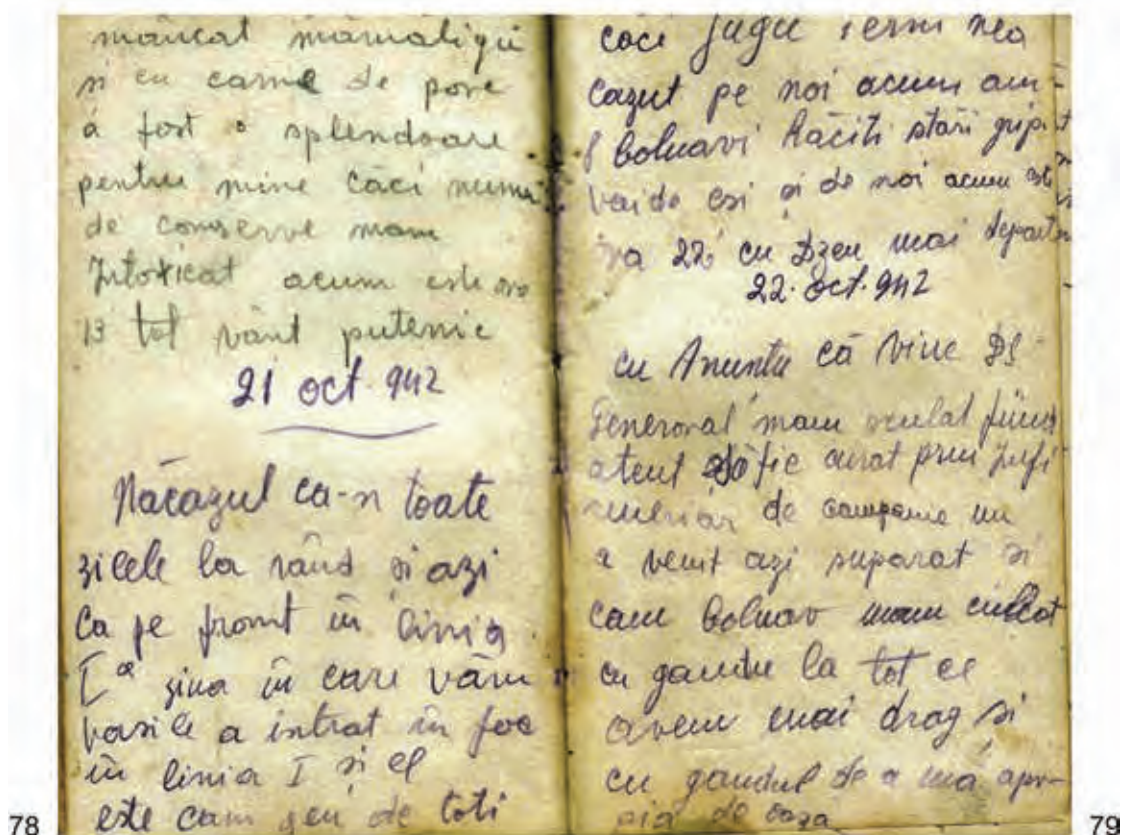 mâncat mămăligă
și cu carne de porc
a fost o splendoare
pentru mine căci numai
de conserve mam
Intoxicat acum este ora
13 tot vânt puternic
21 oct. 942
Năcazul ca-n toate
zilele la rând și azi
Ca pe front în linia
I a ziua în care văru
vasile a intrat în foc
în linia I și el
este cam greu de toti
78
căci iernii nea
cazut pe noi acum am
bolnavi Răciti stări gripa
vai de esi și de noi acum este
ora 22 cu Dzeu mai departe
22. oct. 942
cu Anuntu că vine Dl
General mam sculat fiind
atent să fie curat prin
de campanie nu
a venit azi suparat si
cam bolnav mam culcat
cu gandu la tot ce
avem mai drag si
cu gandul de a mă apro-
pia de casa
79